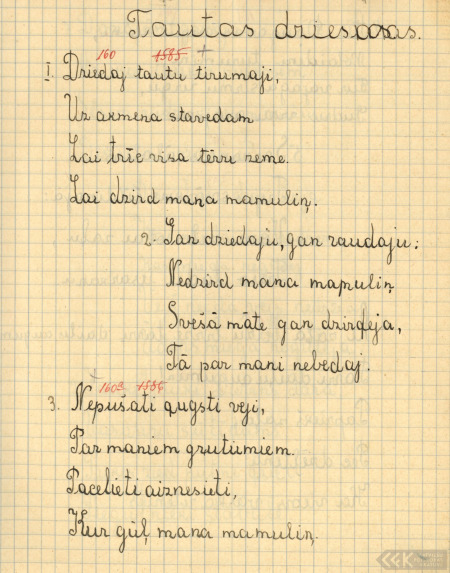 Tautas dziesmas.
160 1585 +
1. Dziedaj tautu tirumaji,
Uz akmeņa stavedam
Lai trīc visa tēvu zeme.
Lai dzird maņa mamuliņ.
2. Gan dziedaju, gan raudaju;
Nedzird mana mamuliņ
Svešā māte gan dzirdeja,
Tā par mani nebedaj.
+ 1603 1586
3. Nepušati augsti veji,
Par maniem grutumiem.
Pacelieti aiznesieti,
Kur gūļ mana mamuliņ.